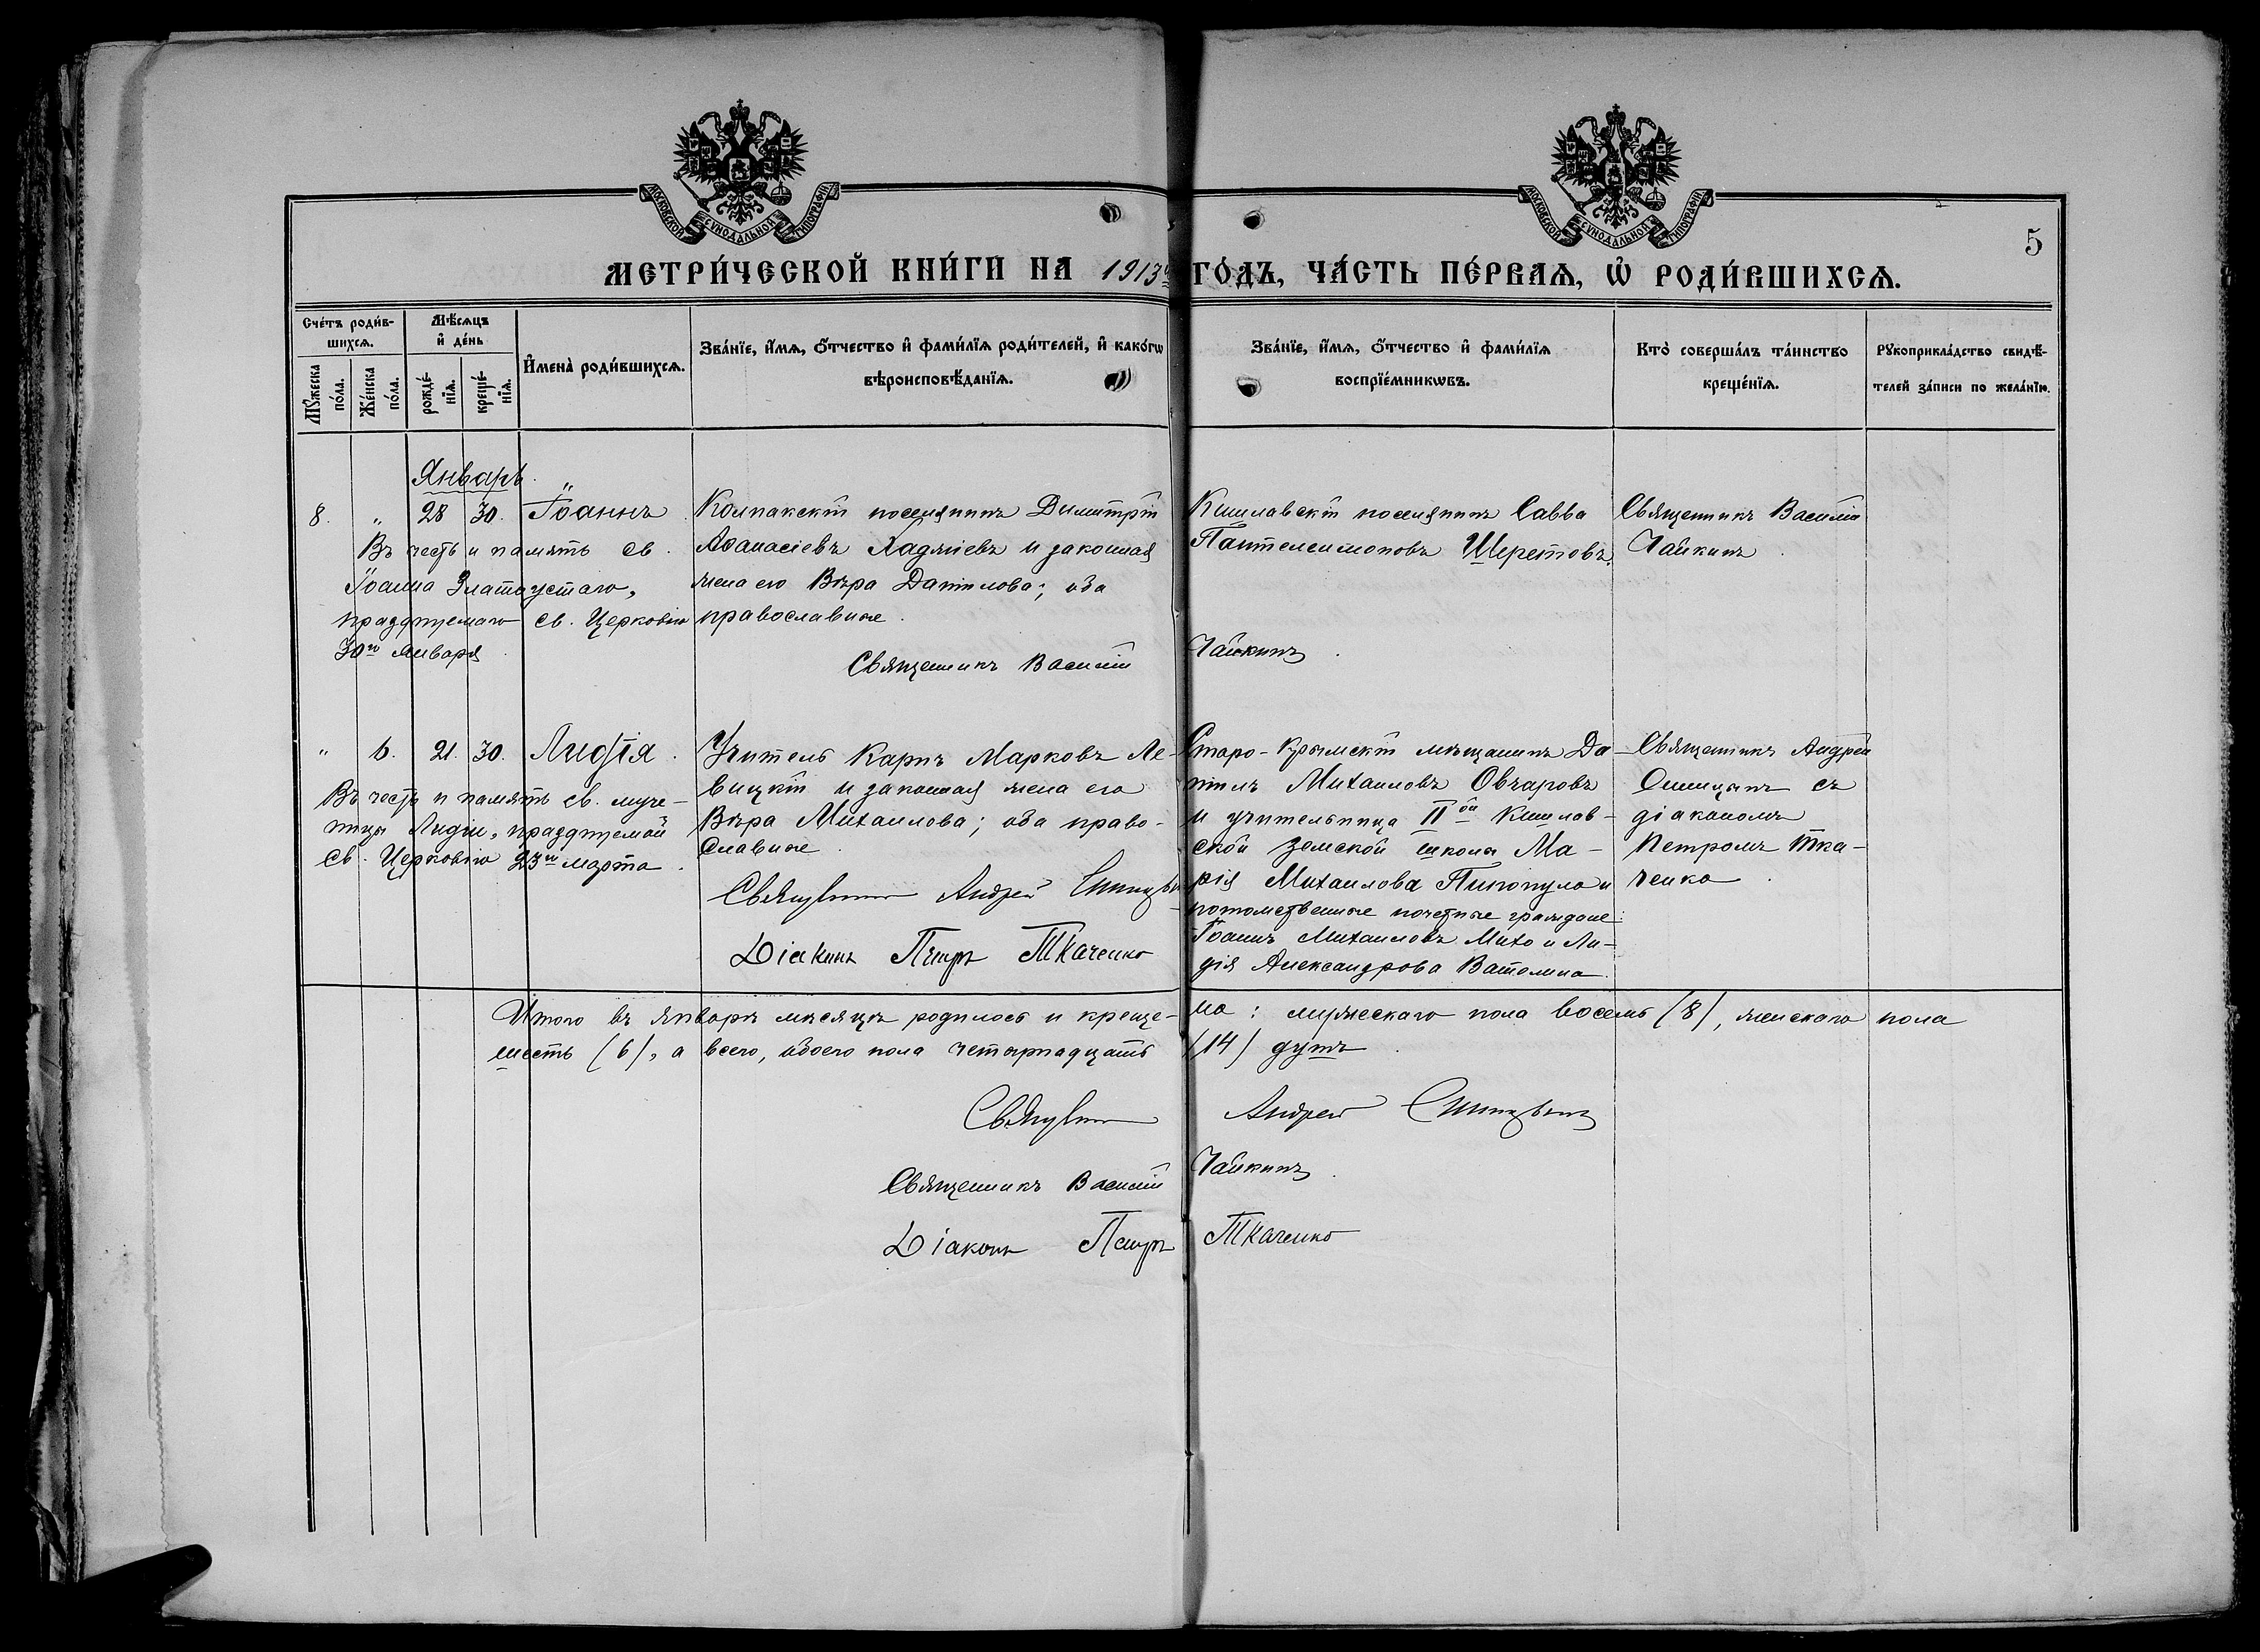 МОСКОВСКОЙ СУНОДАЛЬНОЙ ТИПОГРАФІИ
МОСКОВСКОЙ СУНОДАЛЬНОЙ ТИПОГРАФІИ
5
МЕТРИ́ЧЕСКОЙ КНИ́ГИ НА 1913й ГО́ДЪ, ЧА́СТЬ ПЕ́РВАѦ, Ѡ҆ РОДИ́ВШИХСѦ.
Сче́тъ роди́в-
шихсѧ.
Мѣ́сѧцъ
и҆ де́нь
Мꙋ́жеска
по́ла.
Же́нска
по́ла.
рожде́-
нїѧ.
креще́-
нїѧ.
И҆мена̀ роди́вшихсѧ.
Зва́нїе, и҆́мѧ, ѻ҆́тчество и҆ фами́лїѧ роди́телей, и҆ како́гѡ
вѣроисповѣ́данїѧ.
Зва́нїе, и҆́мѧ, ѻ҆́тчество и҆ фами́лїѧ
воспрїе́мникѡвъ.
Кто̀ соверша́лъ та́инство
креще́нїѧ.
Рꙋкоприкла́дство свидѣ́-
телей за́писи по жела́нїю.
Январь.
8. " 28 30. Іоаннъ.
Въ честь и память св.
Іоанна Златоустаго,
празднуемаго св. Церковію
30го января.
Колпакскій поселянинъ Димитрій
Аѳанасіевъ Хаджіевъ и законная
жена его Вѣра Данилова; оба
православные.
Кишлавскій поселянинъ Савва
Пантелеимоновъ Шеретовъ.
Священникъ Василій
Чайкинъ.
Священникъ Василій Чайкинъ.
" 6. 21. 30. Лидія.
Въ честь и память св. муче-
ницы Лидіи, празднуемой
св. Церковію 23го марта.
Учитель Карпъ Марковъ Ле-
вицкій и законная жена его
Вѣра Михаилова; оба право-
славные.
Старо-Крымскій мѣщанинъ Да-
ніилъ Михаиловъ Овчаровъ
и учительница IIой Кишлав-
ской земской школы Ма-
рія Михаилова Пикопуло и
потомственные почетные граждане:
Іоаннъ Михаиловъ Михо и Ли-
дія Александрова Ватолина.
Священникъ Андрей
Синицынъ съ
діакономъ
Петромъ Тка-
ченко.
Священникъ Андрей Синицынъ
Діаконъ Петръ Ткаченко
Итого въ январѣ мѣсяцѣ родилось и креще-но: мужескаго пола восемь (8), женскаго пола
шесть (6), а всего, обоего пола четырнадцать (14) душъ.
Священникъ Андрей Синицынъ
Священникъ Василій Чайкинъ.
Діаконъ Петръ Ткаченко